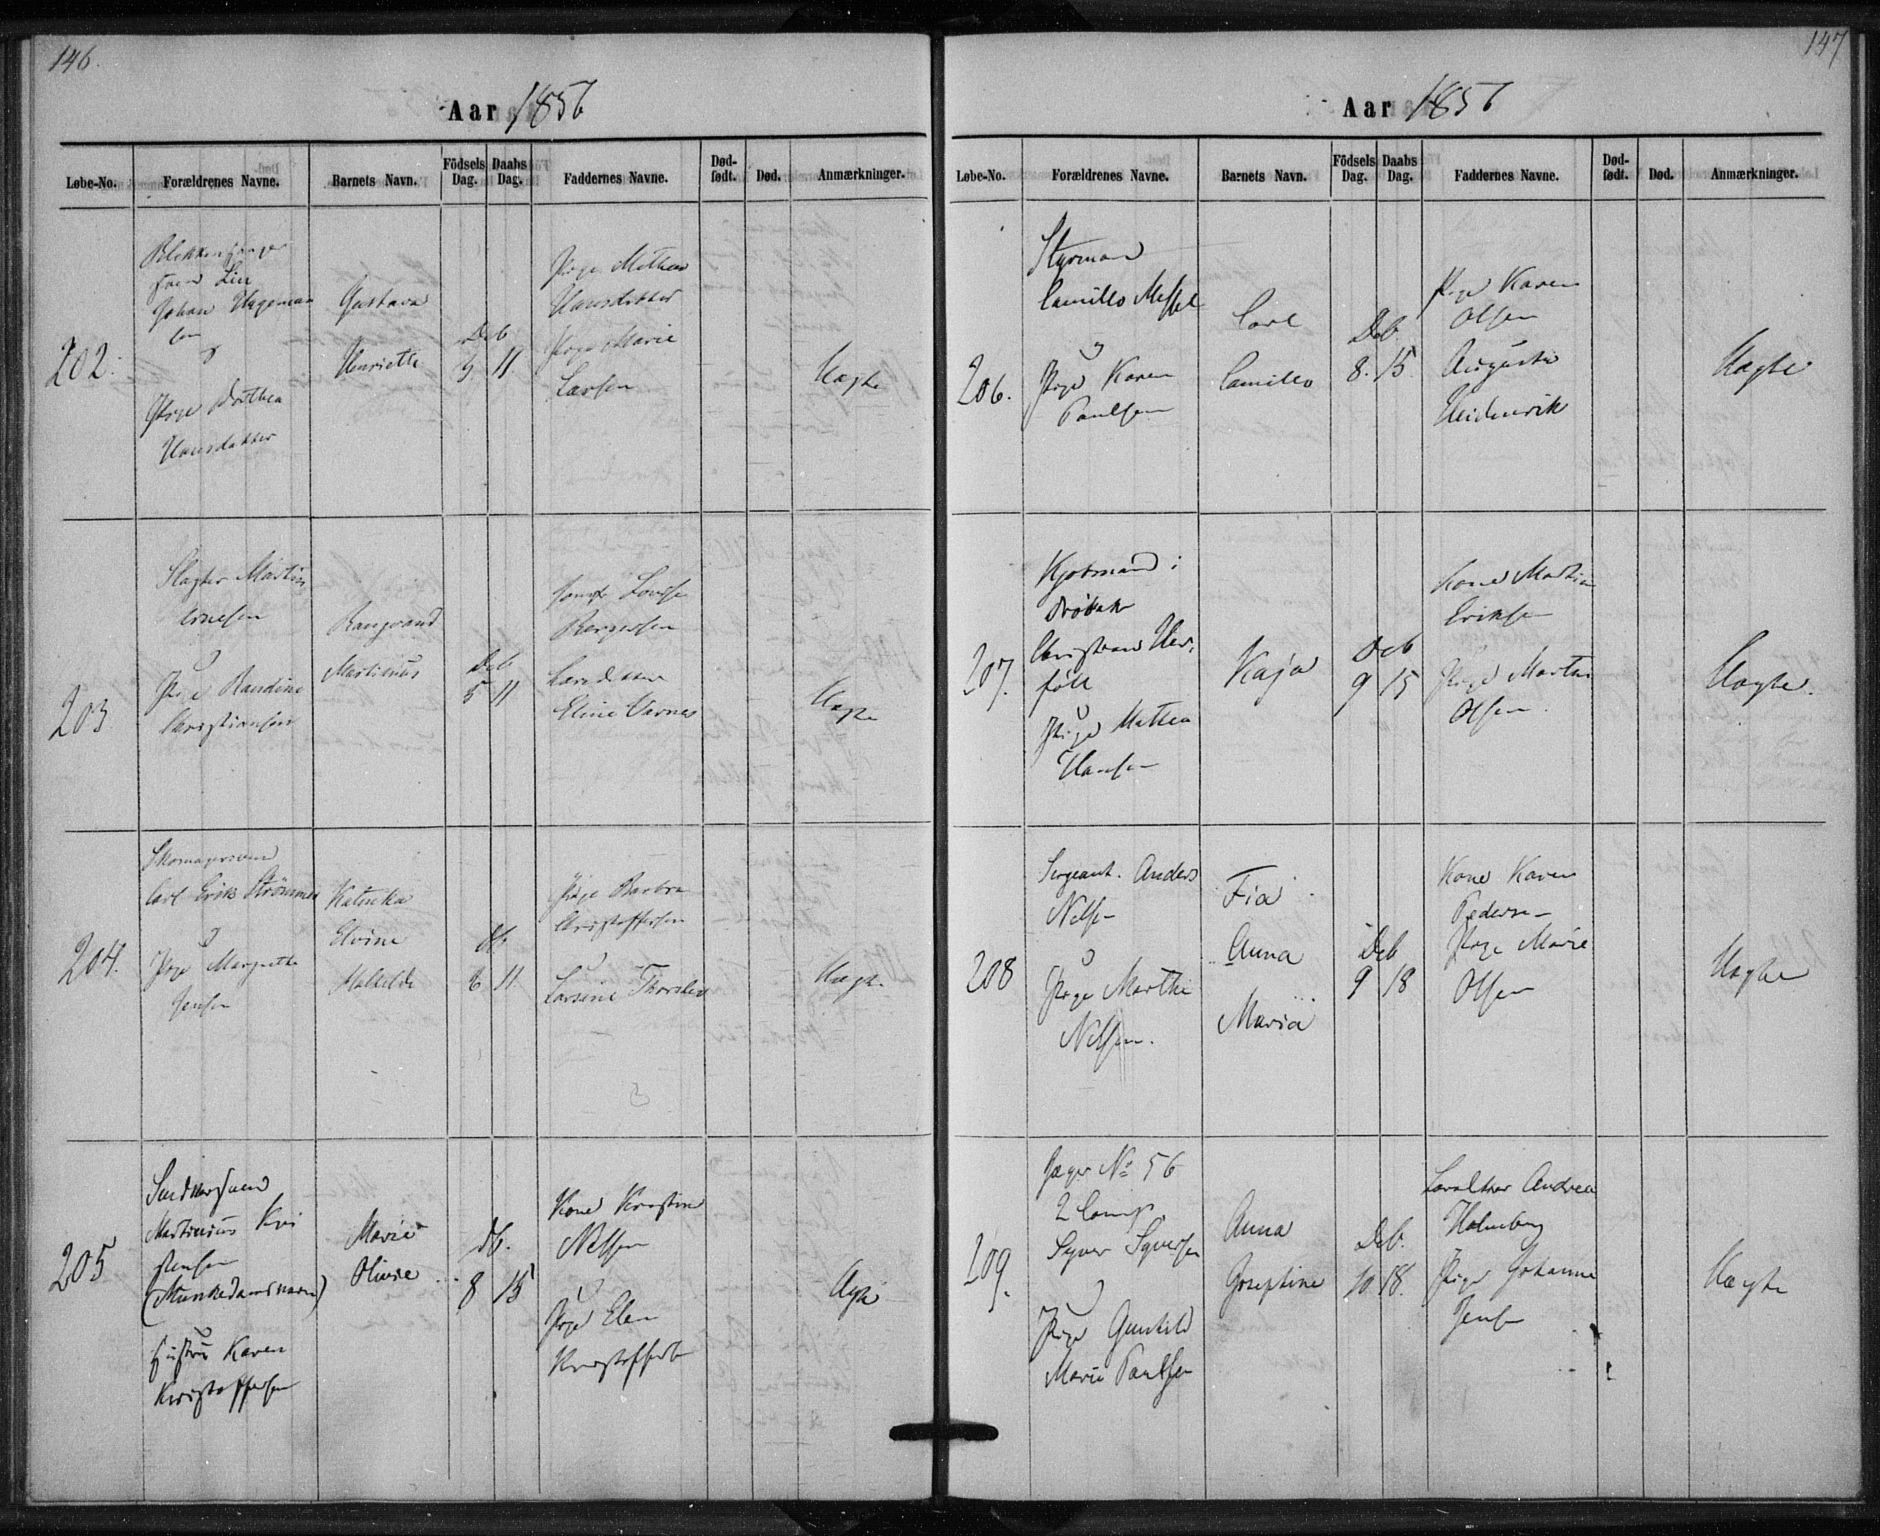 146.
Aar 1856
Løbe-No. Forældrenes Navne. Barnets Navn. Födsels Dag. Daabs Dag. Faddernes Navne. Død-födt. Død. Anmærkninger.
202.
Johan Hagemann
Pige Dorthea
Hansdatter
Gustava
Henriette
Deb
3 11
Pige Mathea
Hansdatter
Pige Marie
Larsen
Uægte
203
Slagter Martin
Pige Randine
Christiansen
Rangvand
Martinius
Deb
5 11
Jomf Lovise
Bergersen
Eline Varnes
Uægte
204.
Skomagersvend
Carl Erik Strömmer
Pige Margrethe
Jensen
Katinka
Elvine
Mathilde
Db
6 11
Pige Barbra
Christoffersen
Larsine Thorslev
Uægte
205
Martinius Kri
stensen
(Munkedamsveien)
Hustru Karen
Kristoffersen
Marie
Olivie
Db.
8 15
Kone Kristine
Nelsen
Pige Elen
Kristoffersd
Ægte
147
Aar 1856
Løbe-No. Forældrenes Navne. Barnets Navn. Födsels Dag. Daabs Dag. Faddernes Navne. Død-födt. Død. Anmærkninger.
206.
Styrmand
Camillo Messel
Pige Karen
Paulsen
Carl
Camillo
Deb.
8. 15
Pige Karen
Olsen
Augusta
Heidenrik
Uægte
207.
Kjøbmand i
Drøbak
Christian Her,
föll
Pige Mathea
Hansen
Kaja
Deb
9 15
Kone Martin
Eriksen
Pige Martha
Olsen.
Uægte.
208
Sergeant. Anders
Nelsen
Pige Marthe
Nelsen.
Fia
Anna
Maria
Deb
9 18
Kone Karen
Pedersen
Pige Marie
Olsen
Uægte
209.
Jæger No 56
2 Comp.
Syver Syversen
Pige Gunhild
Marie Paulsen
Anna
Josephine
Deb.
10 18.
Andrea
Holmberg
Pige Johanne
Jensen
Uægte